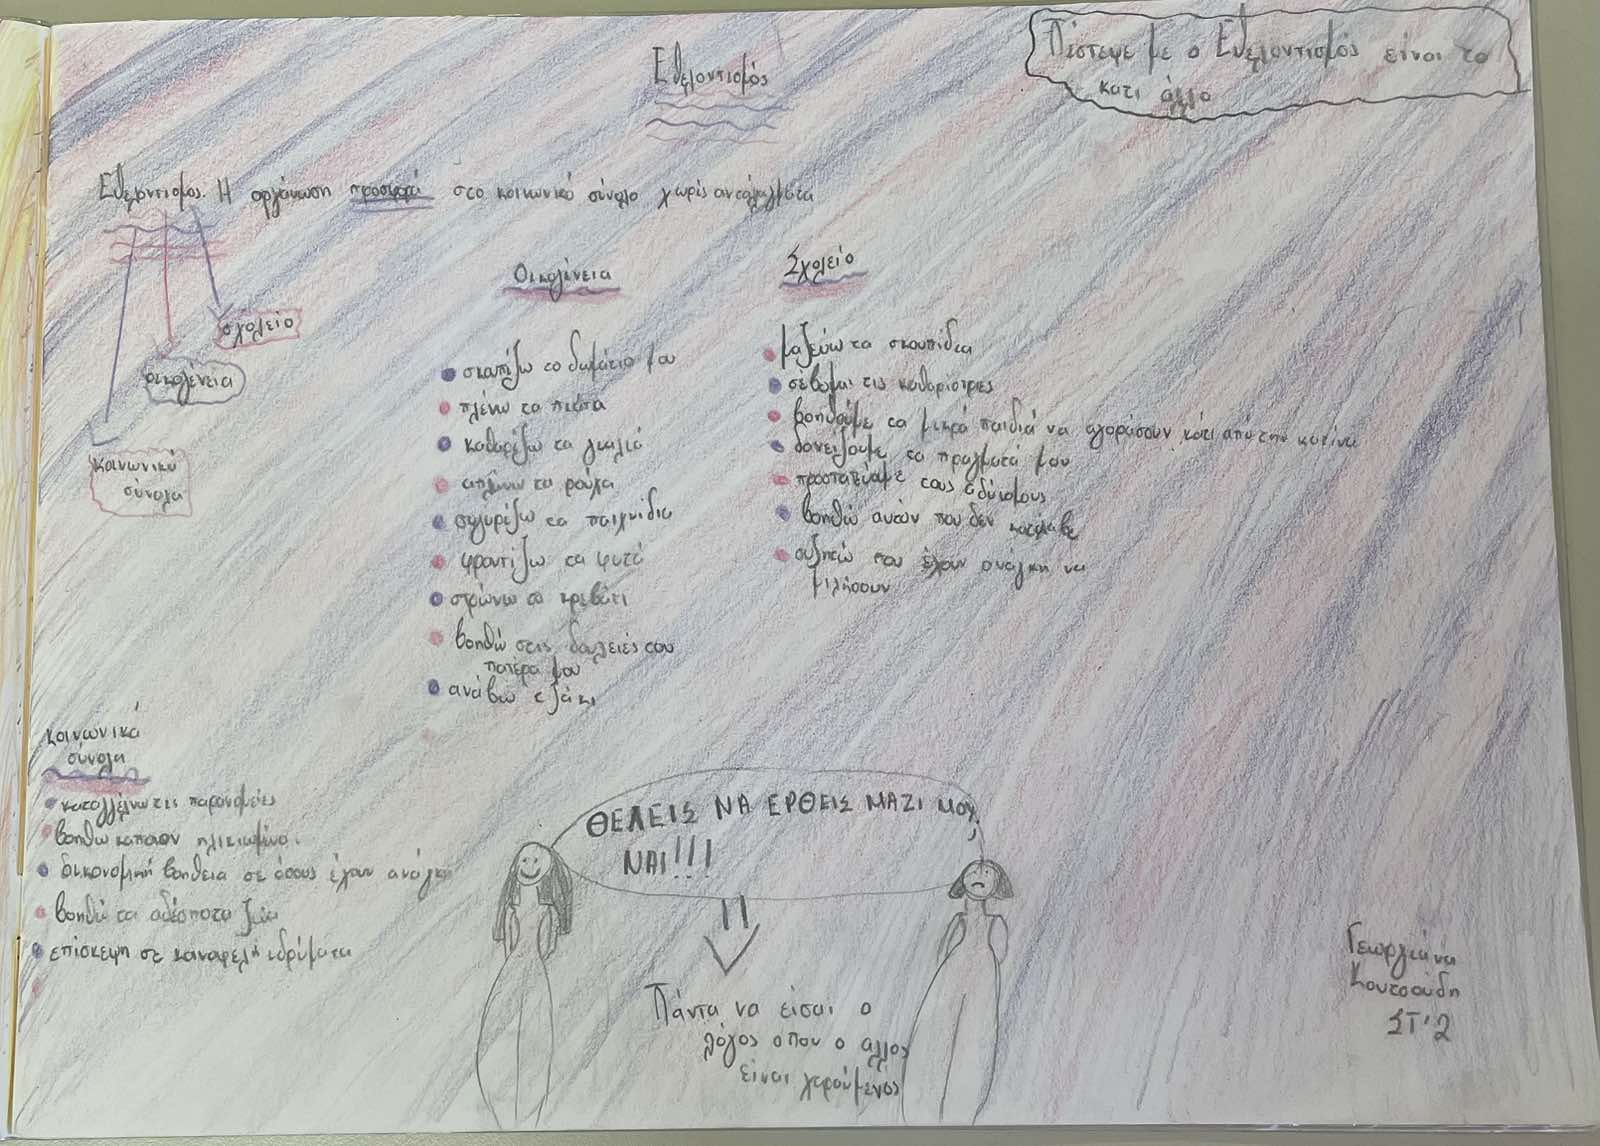 Εθελοντισμός
Πίστεψε με ο Εθελοντισμός είναι το
κατι άλλο
Εθελοντισμος. Η οργάνωση προσφορά στο κοινωνικό σύνολο χωρίς ανταλλάγματα
σχολείο
οικογένεια
κοινωνικό
σύνολο
Οικογένεια
σκουπίζω το δωμάτιο μου
πλένω τα πιάτα
καθαρίζω τα γυαλιά
απλώνω τα ρούχα
συγυρίζω τα παιχνίδια
φροντίζω τα φυτά
στρώνω το κρεβάτι
βοηθώ στις δουλειές του
πατέρα μου
ανάβω τζάκι
Σχολείο
μαζεύω τα σκουπίδια
σέβομαι τις καθαρίστριες
βοηθούμε τα μικρά παιδιά να αγοράσουν κάτι από την καντίνα
δανείζουμε τα πραγματά μου
προστατεύουμε τους αδύναμους
βοηθώ αυτόν που δεν κατάλαβε
συζητώ που έχουν ανάγκη να
μιλήσουν
κοινωνικά
σύνολα
καταγγέλνω τις παρανομίες
βοηθω καποιον ηλικιωμένο
οικονομική βοηθεια σε όσους έχουν ανάγκη
βοηθώ τα αδέσποτα ζώα
επίσκεψη σε κοινοφελή ιδρύματα
ΘΕΛΕΙΣ ΝΑ ΕΡΘΕΙΣ ΜΑΖΙ ΜΟΥ;
ΝΑΙ!!!
Πάντα να είσαι ο
λόγος οπου ο αλλος
είναι χαρούμενος
Γεωργιάνα
Κουτσούδη
ΣΤ'2